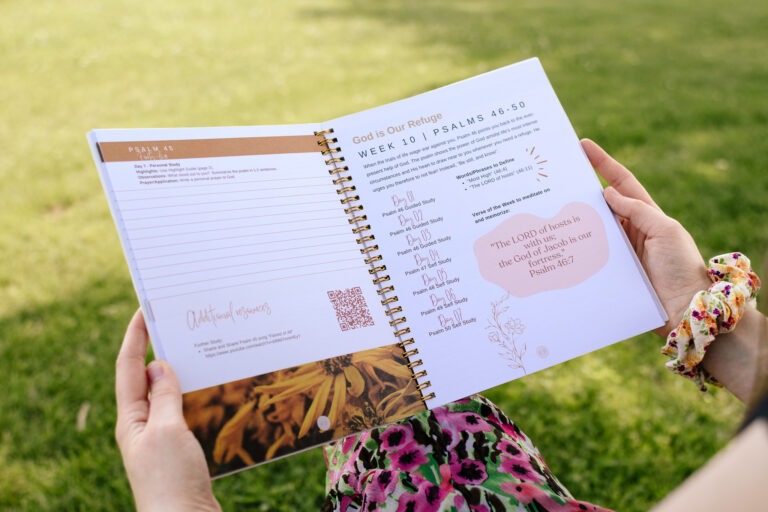 PSALM 45
Day 7 - Personal Study
Highlights: Use Highlight Guide (page 7).
Observations: What stood out to you? Summarize the psalm in 1-2 sentences.
Prayer/Application: Write a personal prayer to God.
Additional resources
Further Study:
God is Our Refuge
WEEK 10 | PSALMS 46-50
When the trials of life wage war against you, Psalm 46 points you back to the ever-
present help of God. The psalm shows the power of God amidst life's most intense
circumstances and His heart to draw near to you whenever you need a refuge. He
urges you therefore to not fear! Instead, "Be still, and know".
Day 01
Psalm 46 Guided Study
Day 02
Psalm 46 Guided Study
Day 03
Psalm 46 Guided Study
Day 04
Psalm 47 Self Study
Day 05
Psalm 48 Self Study
Day 06
Psalm 49 Self Study
Day 07
Psalm 50 Self Study
Words/Phrases to Define
"Most High" (46:4)
"The LORD of hosts" (46:11)
Verse of the Week to meditate on
and memorize:
"The LORD of hosts is
with us;
the God of Jacob is our
fortress."
Psalm 46:7